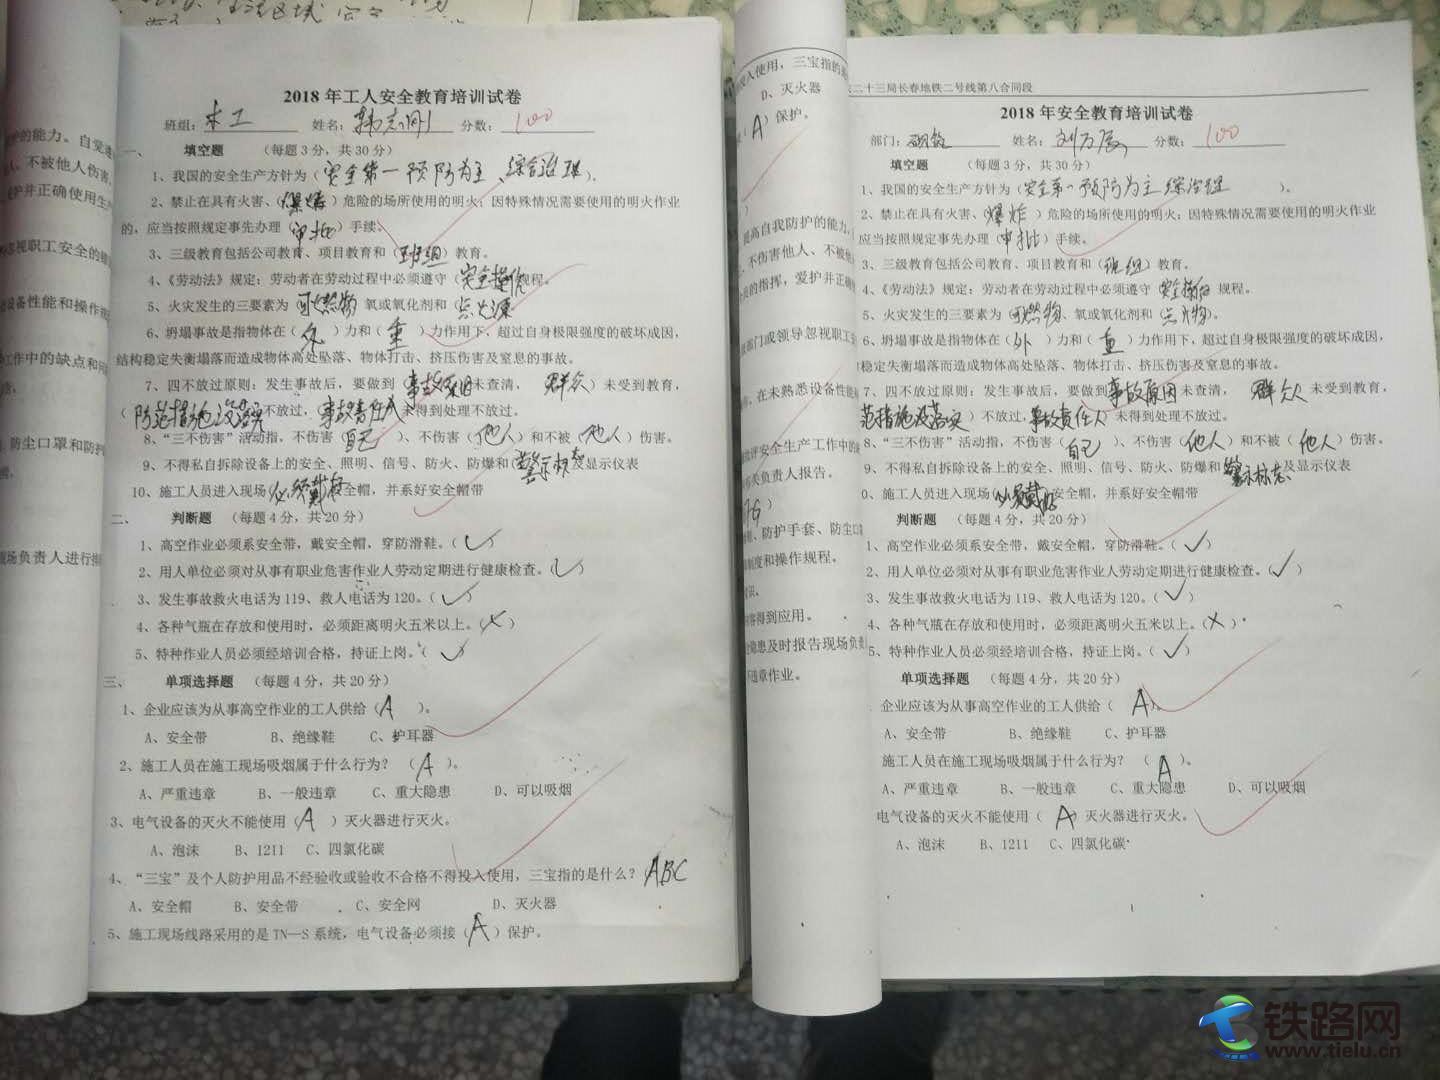 2018 年工人安全教育培训试卷
班组：木工 姓名：韩志刚 分数：100
一、 填空题 （每题 3 分，共 30 分）
1、我国的安全生产方针为（安全第一 预防为主、综合治理）。
2、禁止在具有火害、（爆炸）危险的场所使用的明火；因特殊情况需要使用的明火作业
的，应当按照规定事先办理（审批）手续。
3、三级教育包括公司教育、项目教育和（班组）教育。
4、《劳动法》规定：劳动者在劳动过程中必须遵守（安全操作规程。
5、火灾发生的三要素为 可燃物 氧或氧化剂和（点火源
6、坍塌事故是指物体在（外）力和（重）力作用下，超过自身极限强度的破坏成因，
结构稳定失衡塌落而造成物体高处坠落、物体打击、挤压伤害及窒息的事故。
7、四不放过原则：发生事故后，要做到（事故原因未查清， 群众）未受到教育，
（防范措施没落实不放过，事故责任人未得到处理不放过。
8、“三不伤害”活动指，不伤害（自己）、不伤害（他人）和不被（他人）伤害。
9、不得私自拆除设备上的安全、照明、信号、防火、防爆和（警示标志及显示仪表
10、施工人员进入现场（必须戴好安全帽，并系好安全帽带
二、 判断题 （每题 4 分，共 20 分）
1、高空作业必须系安全带，戴安全帽，穿防滑鞋。（✓）
2、用人单位必须对从事有职业危害作业人劳动定期进行健康检查。（✓）
3、发生事故救火电话为 119、救人电话为 120。（✓）
4、各种气瓶在存放和使用时，必须距离明火五米以上。（×）
5、特种作业人员必须经培训合格，持证上岗。（✓）
三、 单项选择题 （每题 4 分，共 20 分）
1、企业应该为从事高空作业的工人供给（A）。
A、安全带 B、绝缘鞋 C、护耳器
2、施工人员在施工现场吸烟属于什么行为？（A）。
A、严重违章 B、一般违章 C、重大隐患 D、可以吸烟
3、电气设备的灭火不能使用（A）灭火器进行灭火。
A、泡沫 B、1211 C、四氯化碳
4、“三宝”及个人防护用品不经验收或验收不合格不得投入使用，三宝指的是什么？ABC
A、安全帽 B、安全带 C、安全网 D、灭火器
5、施工现场线路采用的是 TN—S 系统，电气设备必须接（A）保护。
二十三局长春地铁二号线第八合同段
2018 年安全教育培训试卷
部门： 姓名：刘万辰 分数：100
填空题 （每题 3 分，共 30 分）
1、我国的安全生产方针为（安全第一 预防为主 综合治理）。
2、禁止在具有火害、（爆炸）危险的场所使用的明火；因特殊情况需要使用的明火作业
应当按照规定事先办理（审批）手续。
3、三级教育包括公司教育、项目教育和（班组）教育。
4、《劳动法》规定：劳动者在劳动过程中必须遵守 安全操作 规程。
5、火灾发生的三要素为 可燃物、氧或氧化剂和（点火物）。
6、坍塌事故是指物体在（外）力和（重）力作用下，超过自身极限强度的破坏成因，
稳定失衡塌落而造成物体高处坠落、物体打击、挤压伤害及窒息的事故。
7、四不放过原则：发生事故后，要做到事故原因未查清， 群众 未受到教育，
范措施没落实）不放过，事故责任人未得到处理不放过。
8、“三不伤害”活动指，不伤害（自己）、不伤害（他人）和不被（他人）伤害。
9、不得私自拆除设备上的安全、照明、信号、防火、防爆和（警示标志及显示仪表
0、施工人员进入现场（必须戴好安全帽，并系好安全帽带
判断题 （每题 4 分，共 20 分）
1、高空作业必须系安全带，戴安全帽，穿防滑鞋。（✓）
2、用人单位必须对从事有职业危害作业人劳动定期进行健康检查。（✓）
3、发生事故救火电话为 119、救人电话为 120。（✓）
4、各种气瓶在存放和使用时，必须距离明火五米以上。（×）
5、特种作业人员必须经培训合格，持证上岗。（✓）
单项选择题 （每题 4 分，共 20 分）
企业应该为从事高空作业的工人供给（A）。
A、安全带 B、绝缘鞋 C、护耳器
施工人员在施工现场吸烟属于什么行为？（A）。
A、严重违章 B、一般违章 C、重大隐患 D、可以吸烟
电气设备的灭火不能使用（A）灭火器进行灭火。
A、泡沫 B、1211 C、四氯化碳
铁路网
www.tielu.cn